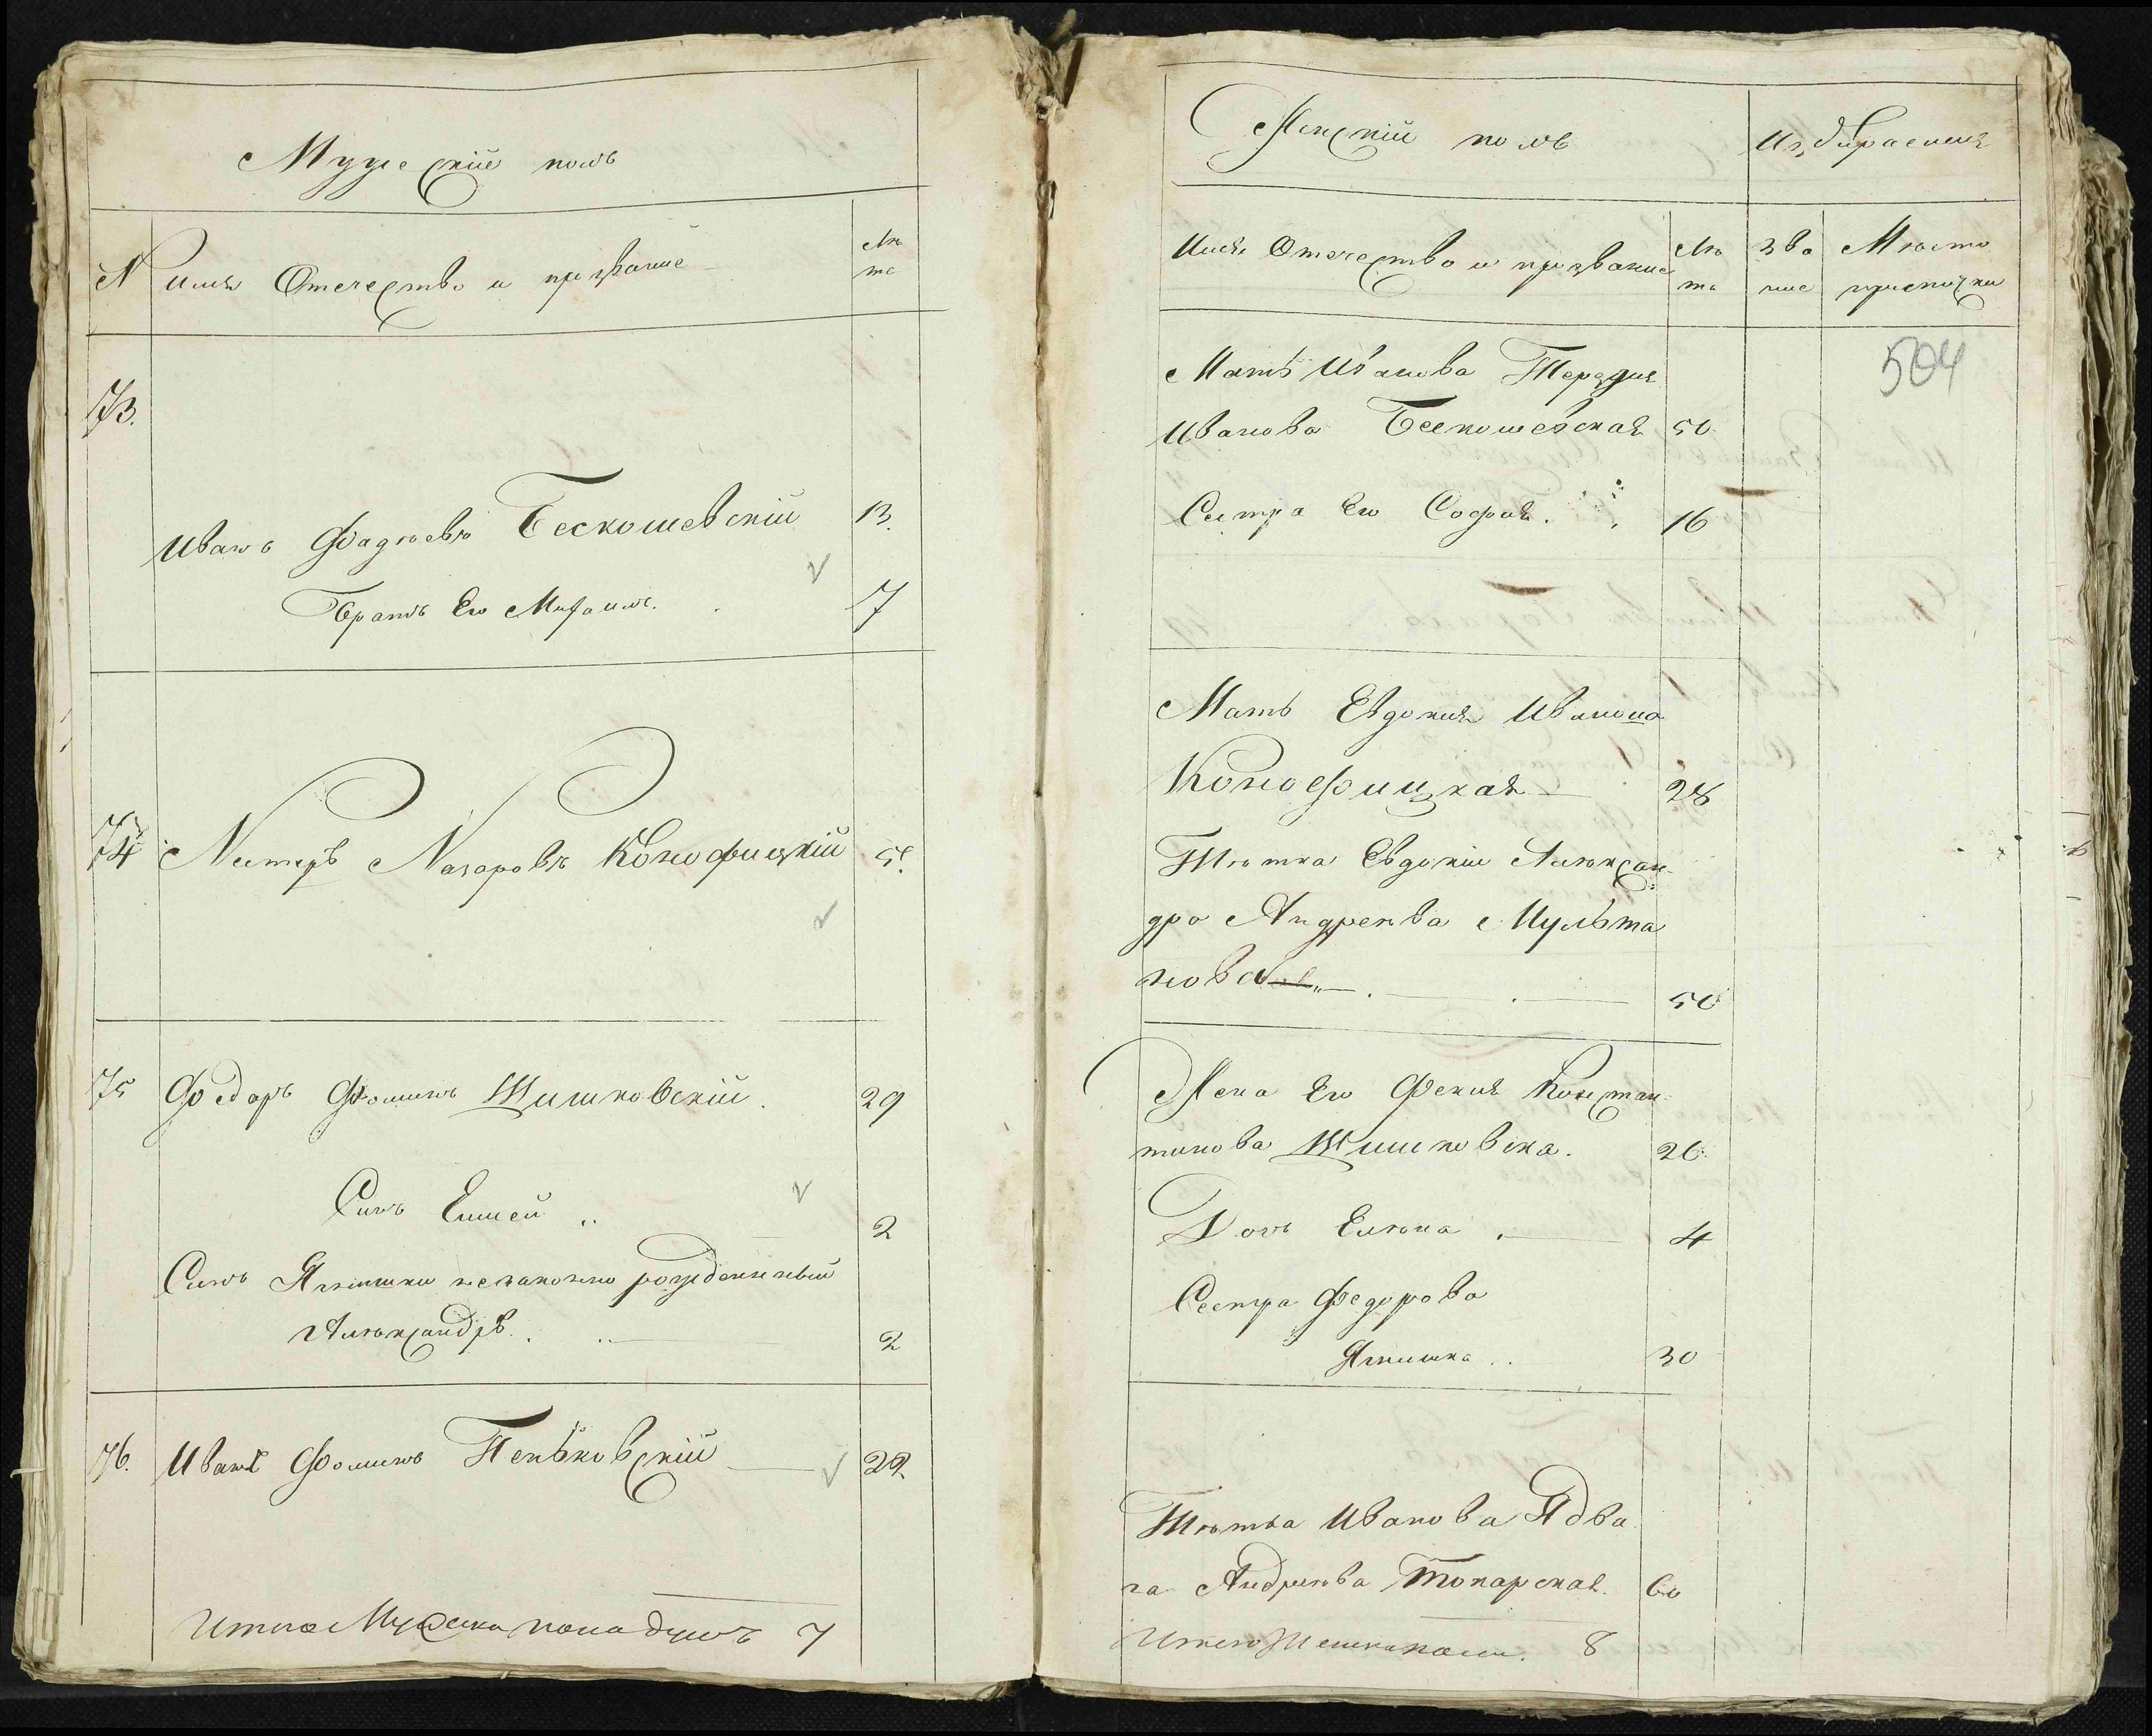 Мужескій полъ
№ Имя Отечество и прозвание Лѣ
та
73.
Иванъ Фадѣевъ Бескошевскій 13.
Братъ Его Михаилъ. 7
74 Петръ Назаровъ Конофицкій 5.
75 Федоръ Фоминъ Шишковскій. 29
Синъ Елисей 2
Синъ Ягнишки незаконно рожденный
Алѣксандръ. 2
76. Иванъ Фоминъ Пеньковскій 22
Итого Мужеска пола душъ 7
Женскій полъ Изъ
Имя Отечество и прозвание Лѣ Зва Мѣсто
та ние приписки
504
Мать Иванова Терезия
Иванова Бескошевская 50
Сестра Его София. 16
Мать Евдокия Иванова
Конофицкая 28
Тѣтка Евдокии Алѣксан-
дра Андреѣва Мульта
нова 50
Жена Его Фекия Констан-
тинова Шишковска. 26.
Дочь Елѣна 4
Сестра Федорова
Ягнишка 30
Тѣтка Иванова Ядви
га Андрѣева Токарская. 60
Итого Женска пола. 8